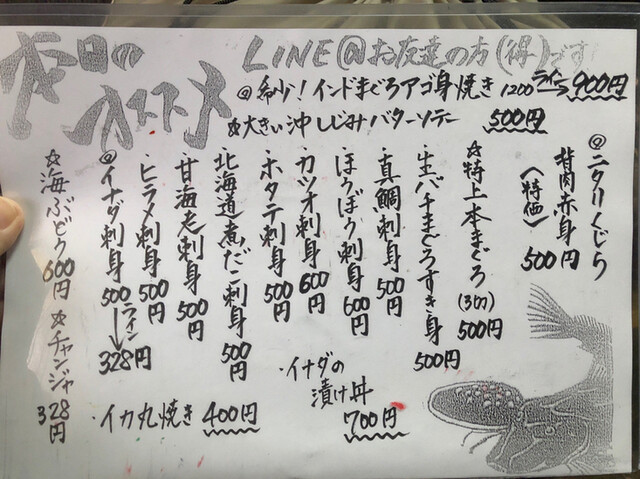 本日の
オススメ
LINE@お友達の方(得)です
◎希少!インドまぐろアゴ身焼き 1200 ライン 900円
☆大きい沖しじみバターソテー 500円
◎ニタリくじら
背肉赤身
(特価) 500円
☆特上本まぐろ(3切) 500円
・生バチまぐろすき身 500円
・真鯛刺身 500円
・ほうぼう刺身 600円
・カツオ刺身 600円
・ホタテ刺身 500円
・北海道煮だこ刺身 500円
・甘海老刺身 500円
・ヒラメ刺身 500円
◎イナダ刺身 500 ライン→328円
☆海ぶどう 600円
☆チャンジャ 328円
・イカ丸焼き 400円
・イナダの
漬け丼
700円